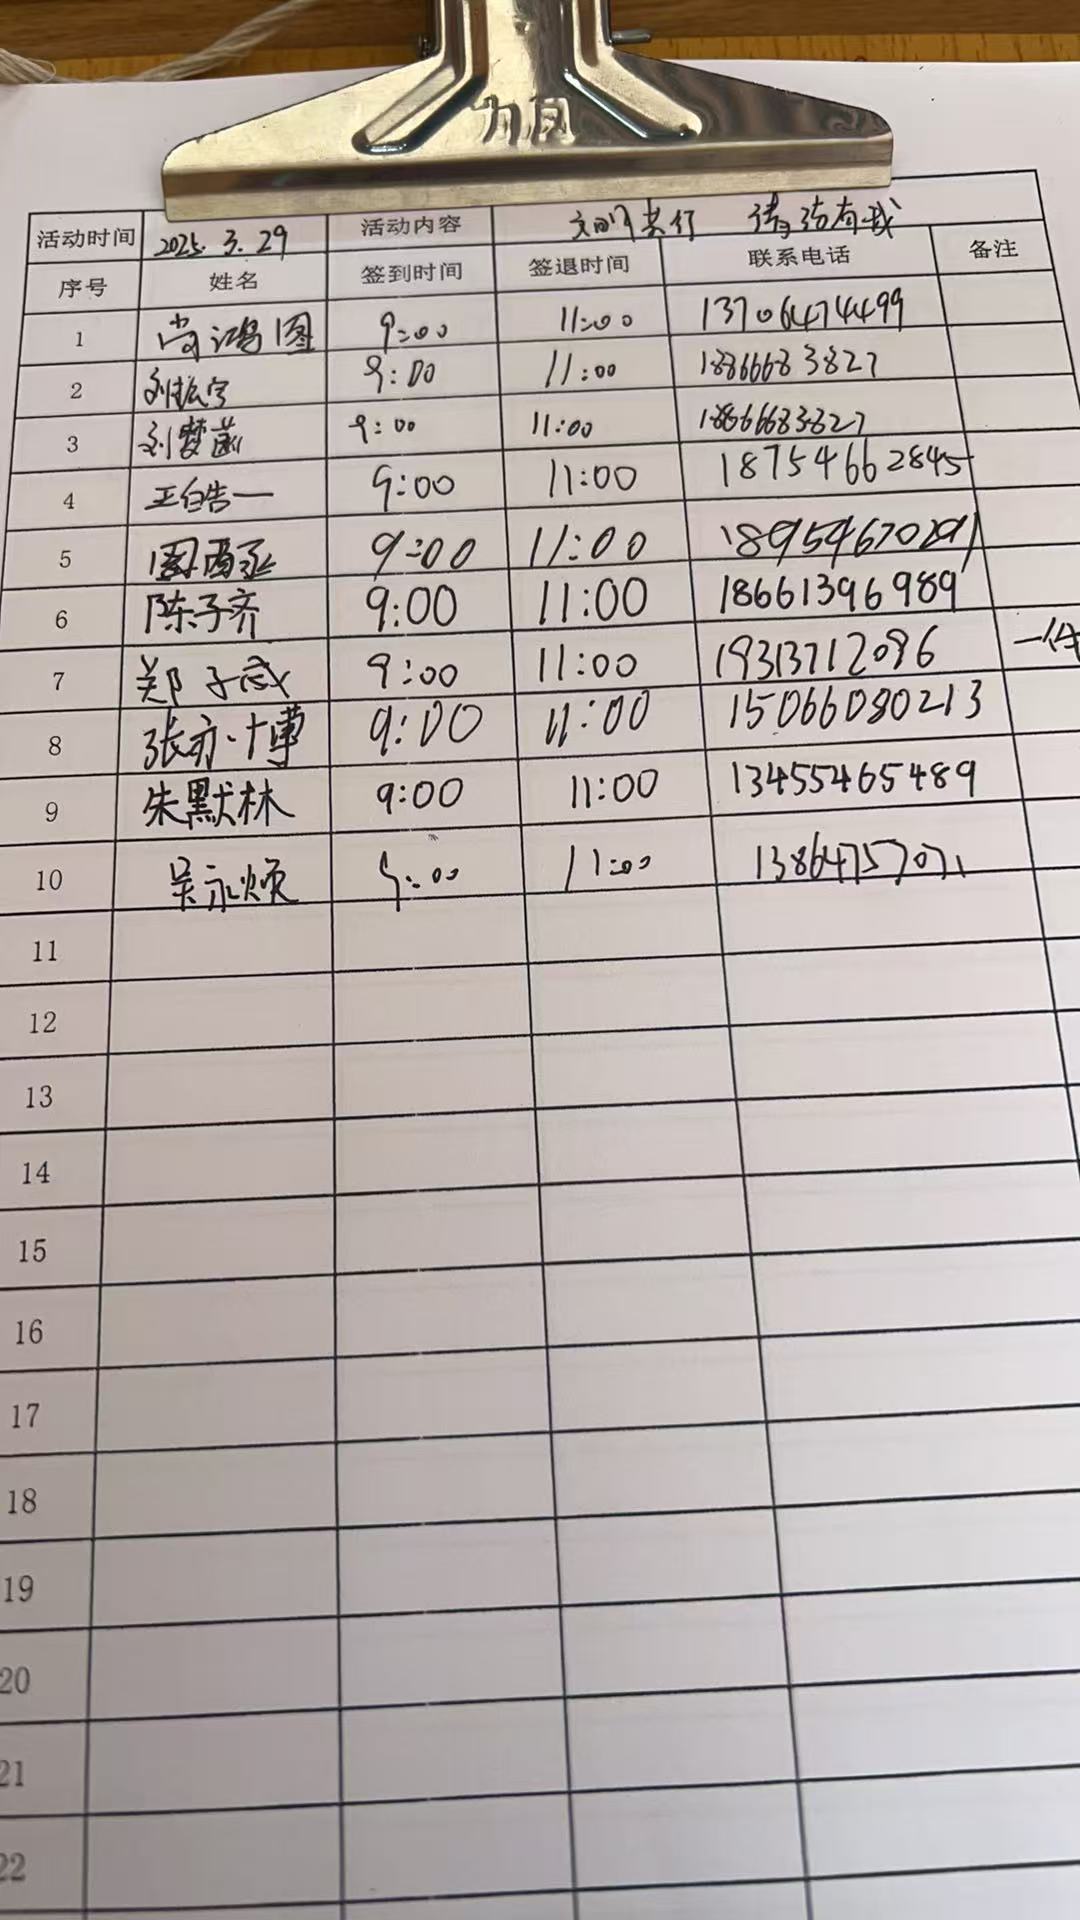 力凤
活动时间 2025. 3. 29 活动内容 文明共行 清洁有我
序号 姓名 签到时间 签退时间 联系电话 备注
1 尚鸿图 9:00 11:00 13706474499
2 刘振宇 9:00 11:00 18866683827
3 刘梦菡 9:00 11:00 18866683827
4 王皓一 9:00 11:00 18754662845
5 周西丞 9:00 11:00
6 陈子齐 9:00 11:00 18661396989
7 郑子宬 9:00 11:00 19313712096
8 张亦博 9:00 11:00 15066080213
9 朱默林 9:00 11:00 13455465489
10 吴永烦 9:00 11:00 13864757071
11
12
13
14
15
16
17
18
19
20
21
22